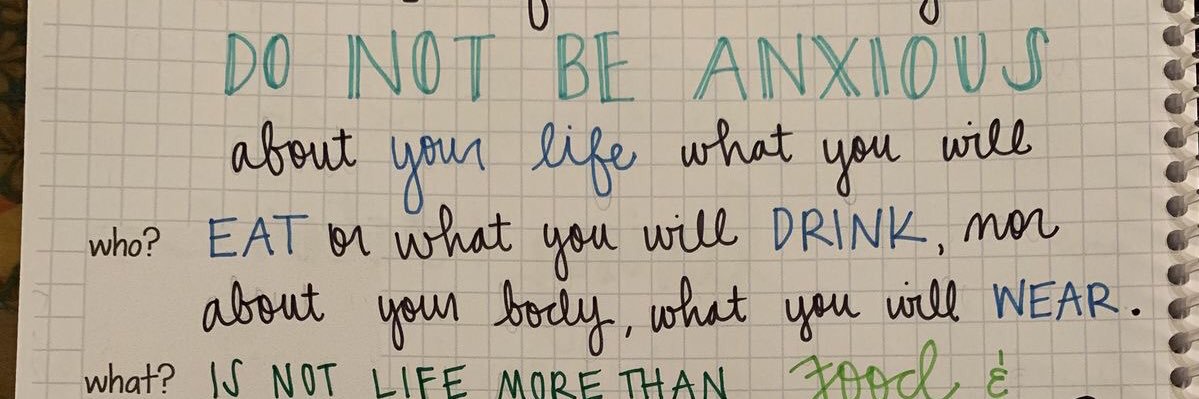 DO NOT BE ANXIOUS
about your life what you will
who? EAT or what you will DRINK, nor
about your body, what you will WEAR.
what? IS NOT LIFE MORE THAN Food &